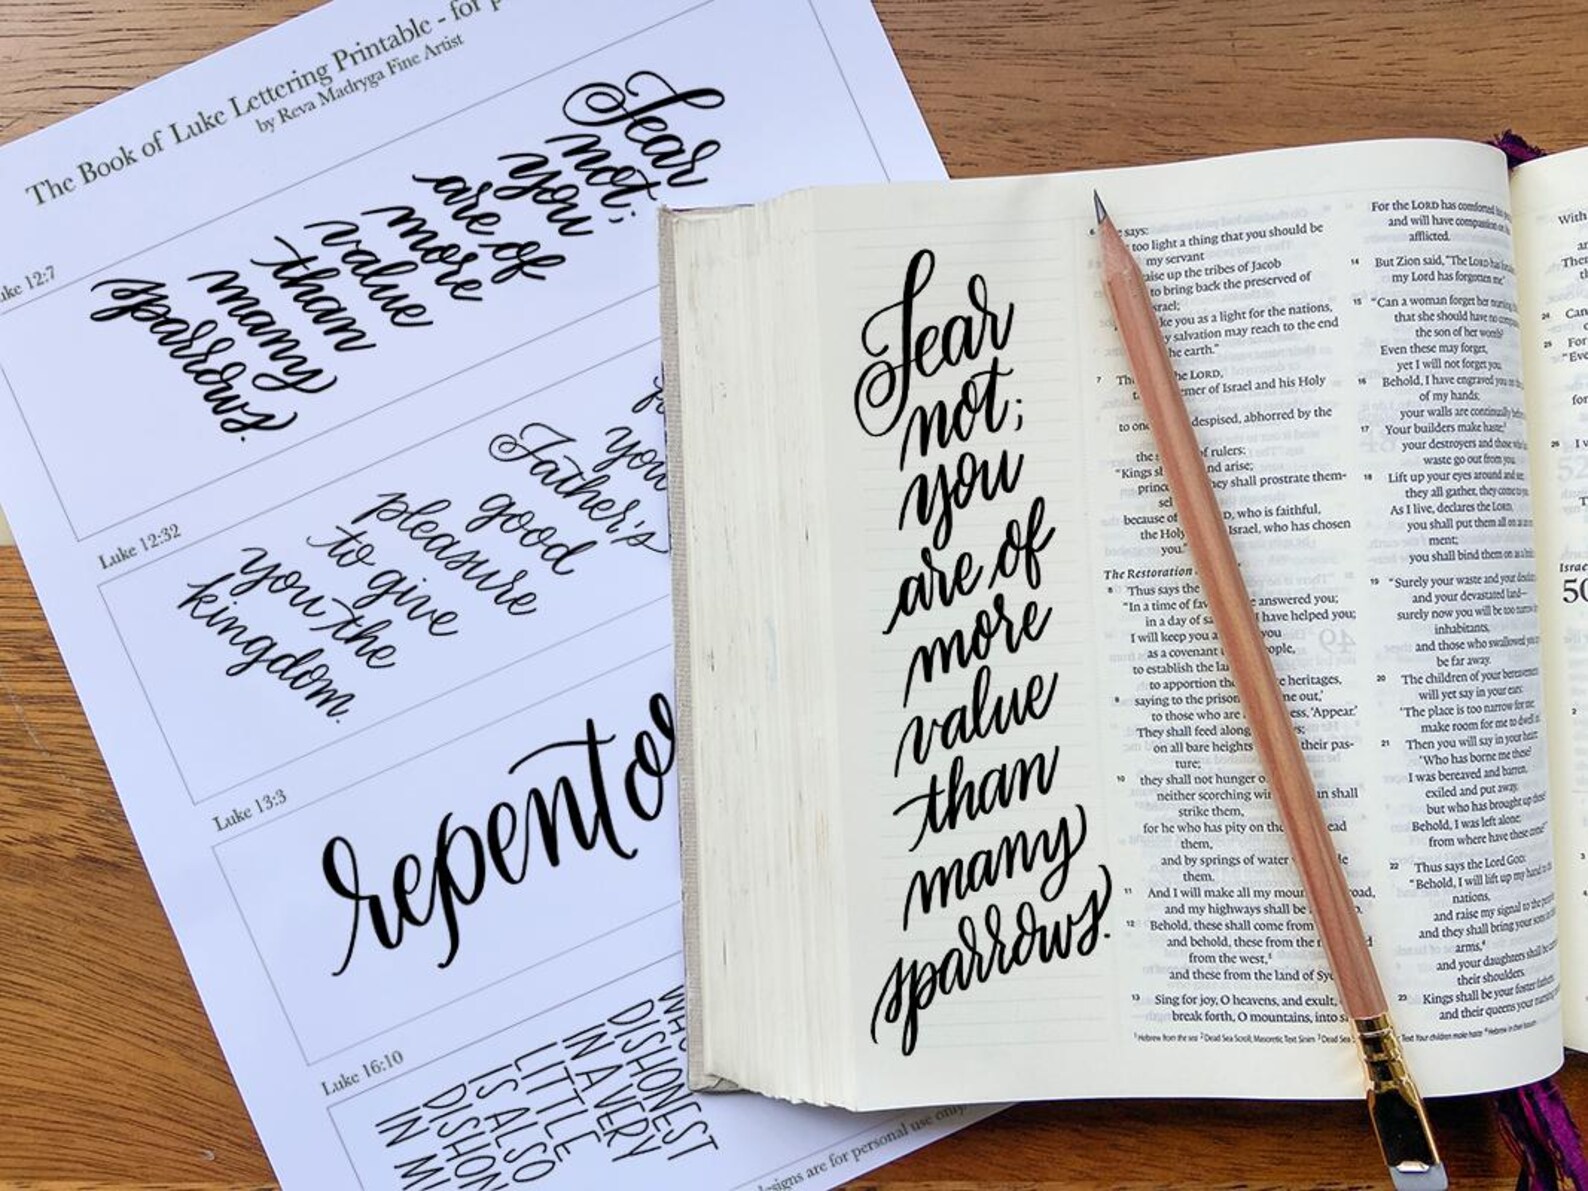 The Book of Luke Lettering Printable - for
by Reva Madryga Fine Artist
Luke 12:7
Fear
not;
you
are of
more
value
than
many
sparrows.
Luke 12:32
you
Father's
good
pleasure
to give
you the
kingdom.
Luke 13:3
repent or
Luke 16:10
DISHONEST
IN A VERY
LITTLE
IS ALSO
IN
designs are for personal use only.
Fear
not;
you
are of
more
value
than
many
sparrows.
6 says:
too light a thing that you should be
my servant
raise up the tribes of Jacob
to bring back the preserved of
Israel;
you as a light for the nations,
salvation may reach to the end
the earth."
7 the LORD,
of Israel and his Holy
despised, abhorred by the
the of rulers:
"Kings and arise;
they shall prostrate them-
because of who is faithful,
the Holy Israel, who has chosen
you."
The Restoration
8 Thus says the
"In a time of answered you;
in a day of I have helped you;
I will keep you you
as a covenant people,
to establish the
to apportion the heritages,
9 saying to the out,'
to those who are 'Appear.'
They shall feed along
on all bare heights their pas-
ture;
10 they shall not hunger
neither scorching sun shall
strike them,
for he who has pity on lead
them,
and by springs of water
them.
11 And I will make all my road,
and my highways shall be
12 Behold, these shall come from
and behold, these from the
from the west,
and these from the land of
13 Sing for joy, O heavens, and exult,
break forth, O mountains, into
1 Hebrew from the sea 2 Dead Sea Scroll, Masoretic Text Sinim 3 Dead Sea
For the LORD has comforted his
and will have compassion on his
afflicted.
14 But Zion said, "The LORD has
my Lord has forgotten me."
15 "Can a woman forget her nursing
that she should have no compassion
the son of her womb?
Even these may forget,
yet I will not forget you.
16 Behold, I have engraved you on the
of my hands;
your walls are continually before
17 Your builders make haste;
your destroyers and those who
waste go out from you.
18 Lift up your eyes around and see;
they all gather, they come to you.
As I live, declares the LORD,
you shall put them all on as an
ment;
you shall bind them on as a
19 "Surely your waste and your desolate
and your devastated land—
surely now you will be too narrow
inhabitants,
and those who swallowed you
be far away.
20 The children of your bereavement
will yet say in your ears:
'The place is too narrow for me;
make room for me to dwell in.'
21 Then you will say in your heart:
'Who has borne me these?
I was bereaved and barren,
exiled and put away,
but who has brought up these?
Behold, I was left alone;
from where have these come?'"
22 Thus says the Lord GOD:
"Behold, I will lift up my hand to
nations,
and raise my signal to the
and they shall bring your sons in
arms,
and your daughters shall be
their shoulders.
23 Kings shall be your foster fathers,
and their queens your nursing
Text Your children make haste
With
24 Can
25 For
"Even
26 I
50